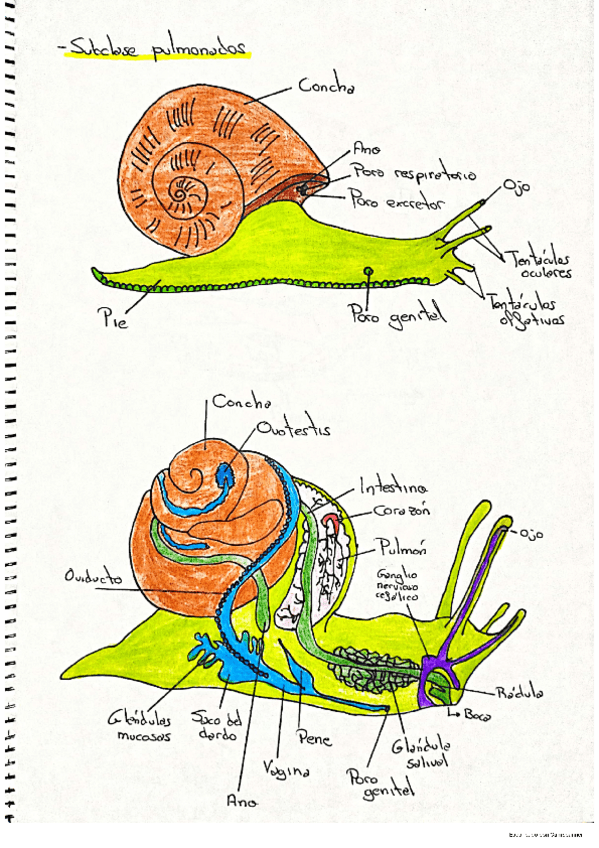 - Subclase pulmonados
Concha
Ano
Poro respiratorio
Poro excretor
Ojo
Tentáculos
oculares
Tentáculos
olfativos
Pie
Poro genital
Concha
Ovotestis
Intestino
Corazón
Pulmón
Ojo
Ganglio
nervioso
cefálico
Oviducto
Rádula
Boca
Glándulas
mucosas
Saco del
dardo
Pene
Glándula
salival
Vagina
Poro
genital
Ano